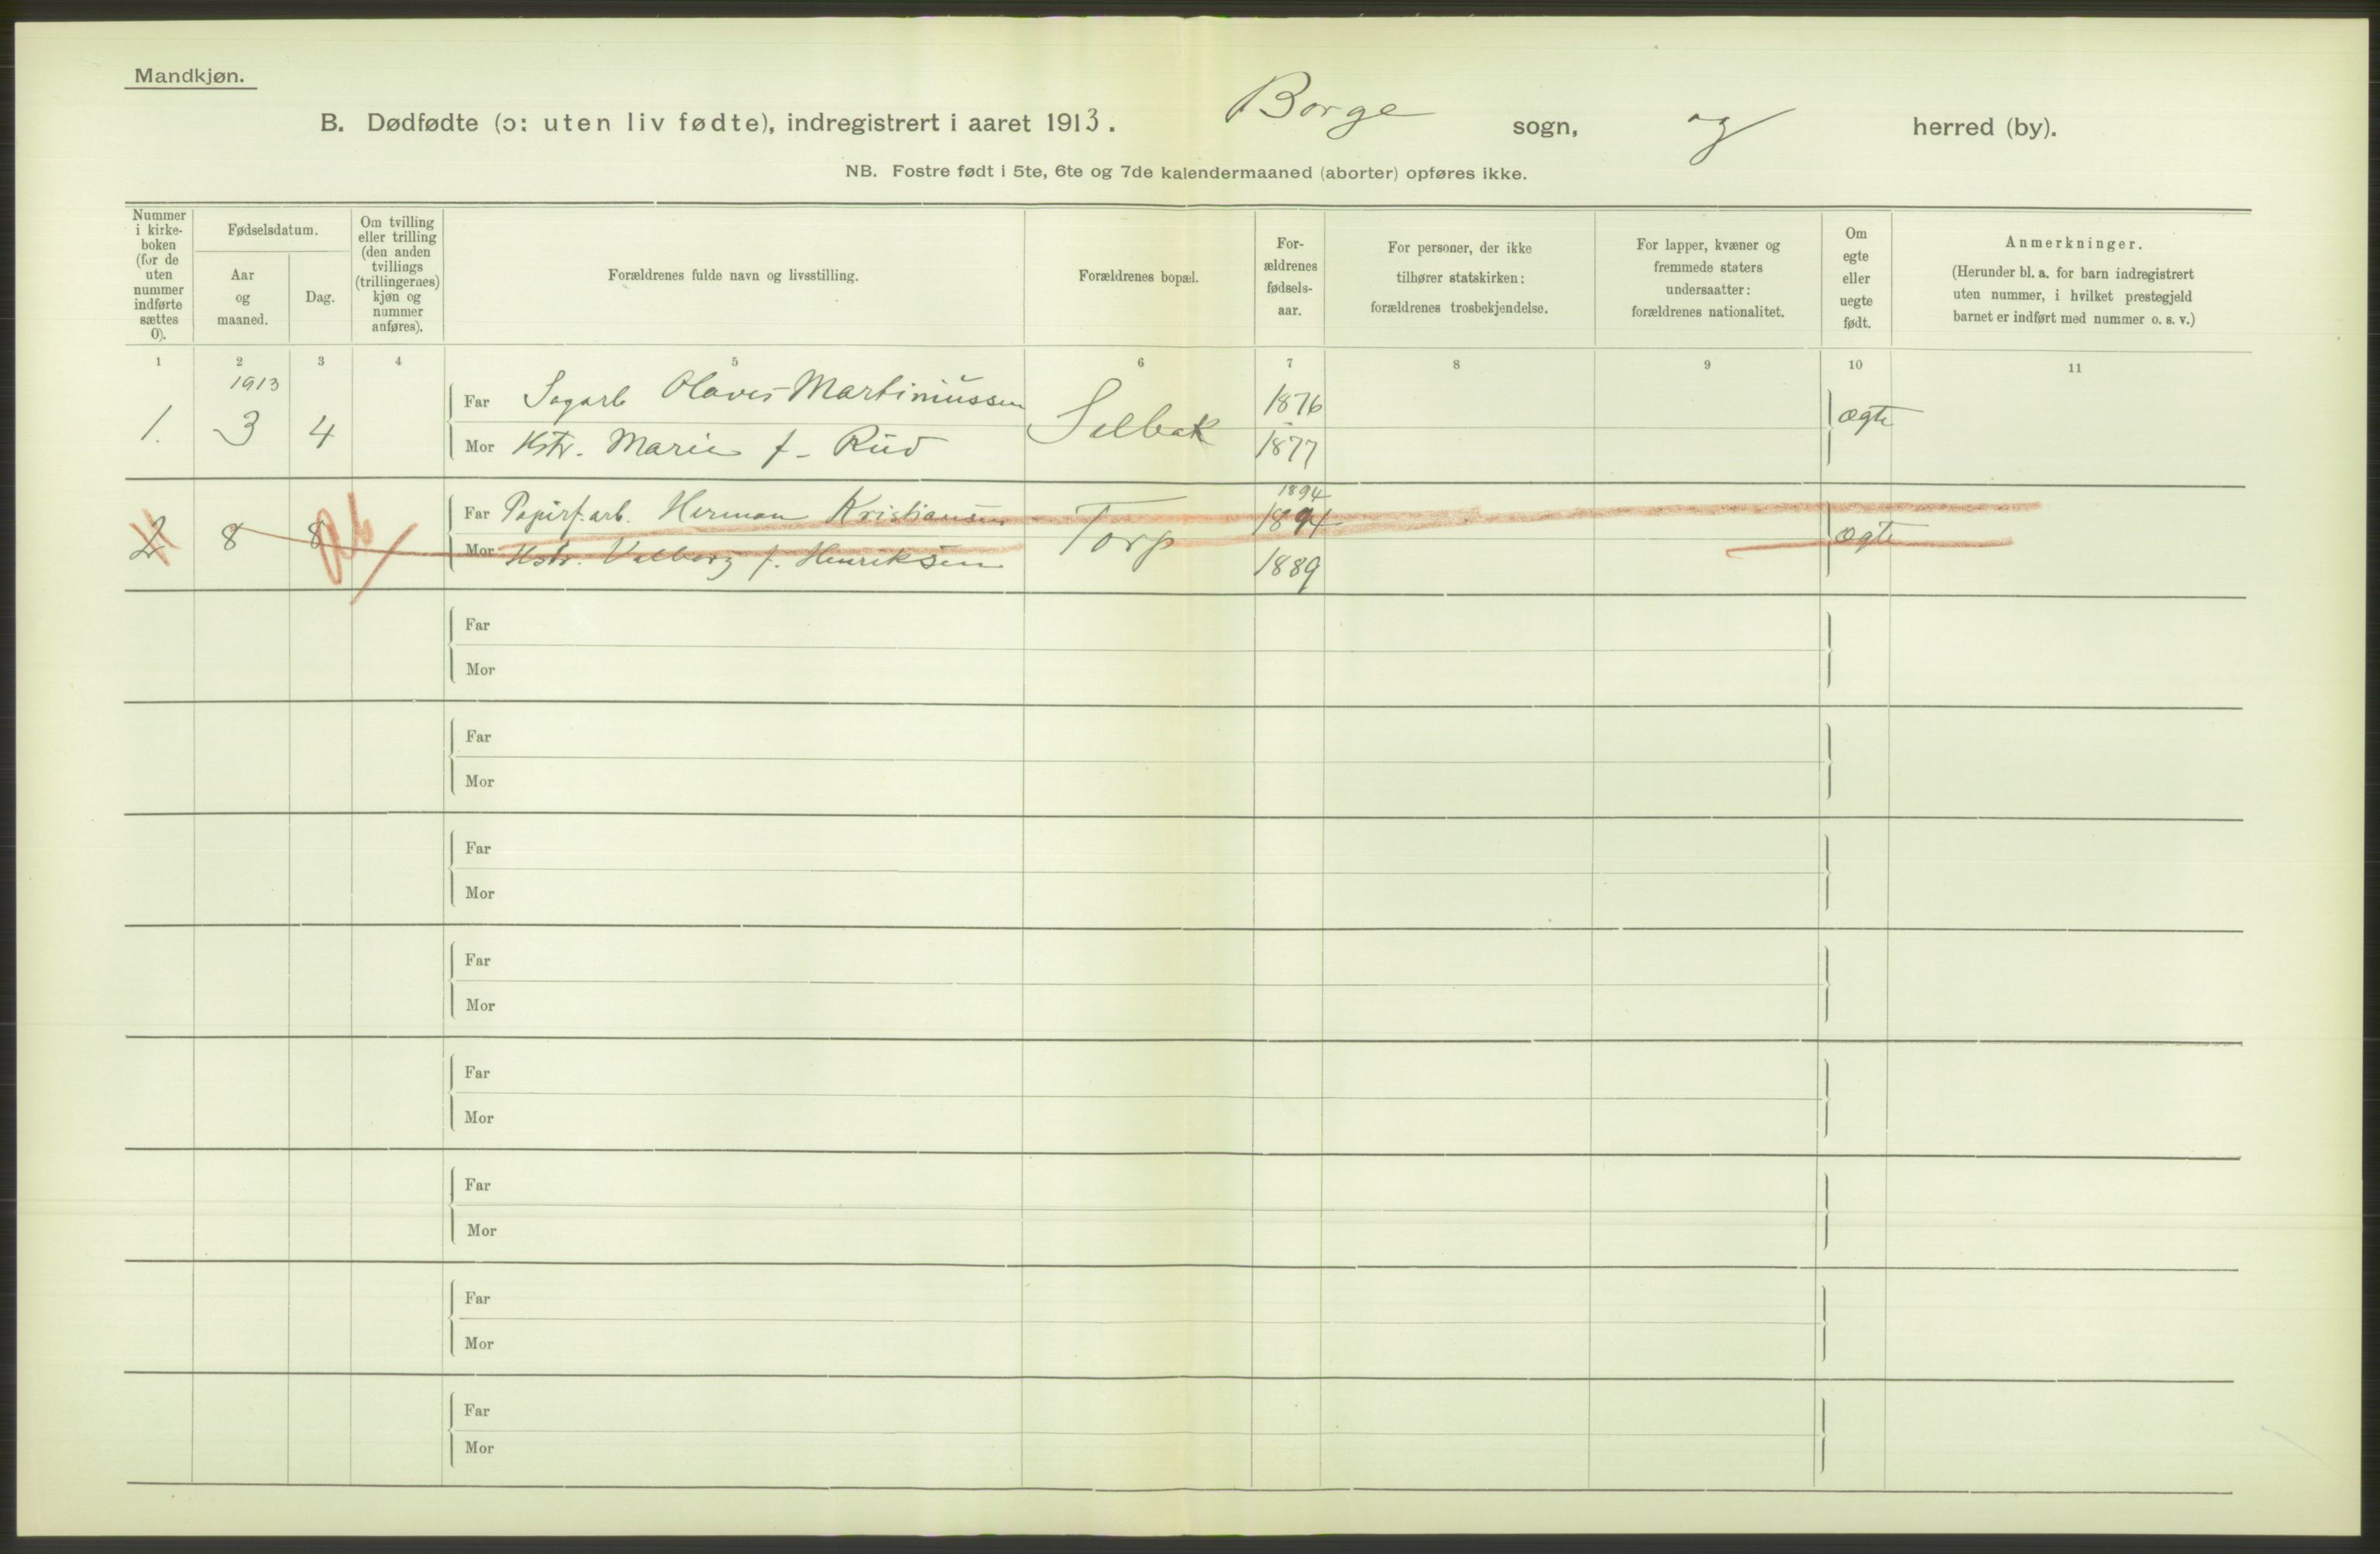 Mandkjøn.
B. Dødfødte (ɔ: uten liv fødte), indregistrert i aaret 1913. Borge sogn, og herred (by).
NB. Fostre født i 5te, 6te og 7de kalendermaaned (aborter) opføres ikke.
Nummer
i kirke-
boken
(for de
uten
nummer
indførte
sættes
0).
Fødselsdatum.
Aar
og
maaned.
Dag.
Om tvilling
eller trilling
(den anden
tvillings
(trillingernes)
kjøn og
nummer
anføres).
Forældrenes fulde navn og livsstilling.
Forældrenes bopæl.
For-
ældrenes
fødsels-
aar.
For personer, der ikke
tilhører statskirken:
forældrenes trosbekjendelse.
For lapper, kvæner og
fremmede staters
undersaatter:
forældrenes nationalitet.
Om
egte
eller
uegte
født.
Anmerkninger.
(Herunder bl. a. for barn indregistrert
uten nummer, i hvilket prestegjeld
barnet er indført med nummer o. s. v.)
1 2 3 4 5 6 7 8 9 10 11
1913
1. 3 4
Far Sagarb Olaves Martiniussen
Mor Hstr. Marie f. Rud
Selbak
1876
1877
ægte
2 8 8
Far Papirf.arb. Herman Kristiansen
Mor Hstr. Valborg f. Henriksen
Torp
1894
1894
1889
ægte
Far
Mor
Far
Mor
Far
Mor
Far
Mor
Far
Mor
Far
Mor
Far
Mor
Far
Mor